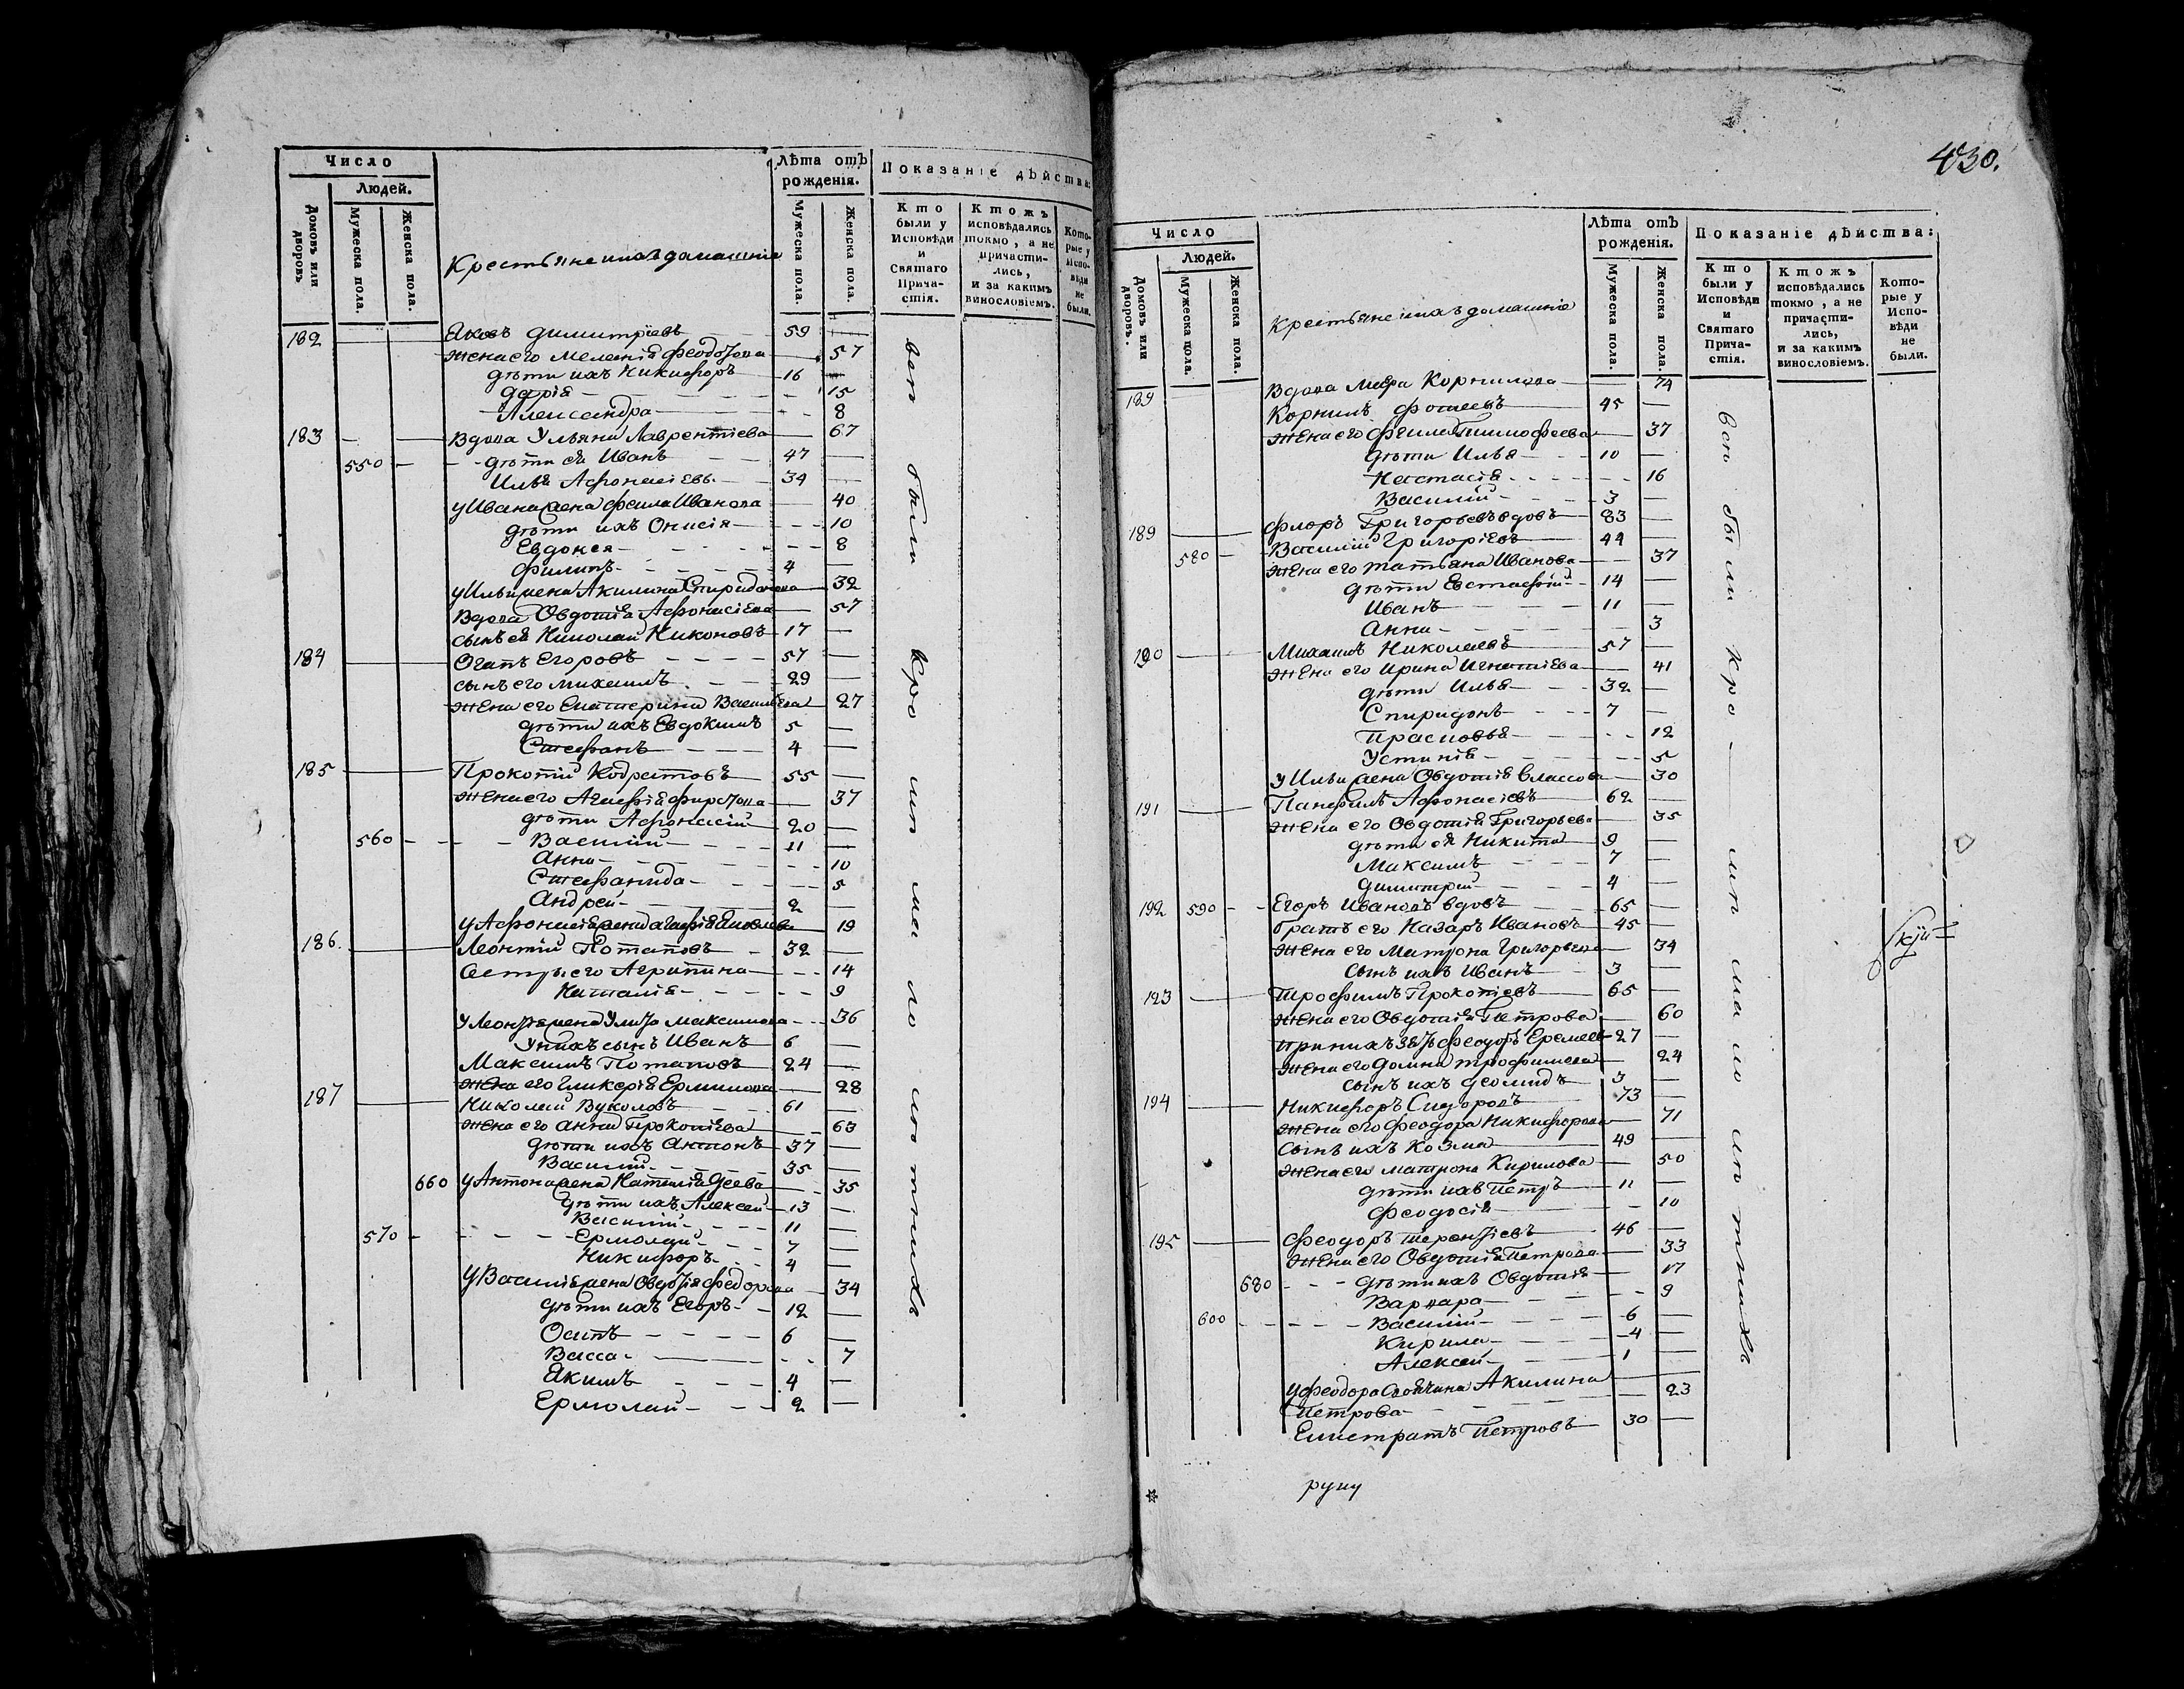 Число
Людей.
Домовъ или дворовъ
Мужеска пола.
Женска пола.
Крестьяне и ихъ домашніе
Лѣта отъ рожденія.
Мужеска пола.
Женска пола.
Показаніе дѣйства:
Кто были у Исповѣди и Святаго Причастія.
Ктожъ исповѣдались токмо, а не причастились, и за какимъ винословіемъ.
Которые у Исповѣди не были.
182 Яковъ Димитріевъ 59
Жена его Меланія Феодотова 57
дѣти ихъ Никифоръ 16
Дарія 15
Александра 8
183 Вдова Ульяна Лаврентіева 67
550 дѣти ея Иванъ 47
Илья Афонасіевъ 34
У Ивана жена Фекла Иванова 40
дѣти ихъ Онисія 10
Евдокея 8
Филипъ 4
У Ильи жена Акилина Спиридонова 32
Вдова Овдотія Афонасіева 57
сынъ ея Николай Никоновъ 17
184 Огапъ Егоровъ 57
сынъ его Михаилъ 29
Жена его Екатерина Васильева 27
дѣти ихъ Евдокимъ 5
Стефанъ 4
185 Прокопій Кодратовъ 55
Жена его Агафія Фирсова 37
дѣти Афонасій 20
560 Василій 11
Анна 10
Стефанида 5
Андрей 2
У Афонасія жена Агафія Яковлева 19
186. Леонтій Потаповъ 32
Сестры его Агрипина 14
Наталія 9
У Леонтія жена Улита Максимова 36
У нихъ сынъ Иванъ 6
Максимъ Потаповъ 24
Жена его Гликерія Ермилова 28
187 Николай Вуколовъ 61
Жена его Анна Прокопіева 63
дѣти ихъ Антонъ 37
Василій 35
660 У Антона жена Наталія 35
дѣти ихъ Алексей 13
Василій 11
570 Ермолай 7
Никифоръ 4
У Василія жена Овдотія Федорова 34
дѣти ихъ Егоръ 12
Осипъ 6
Васса 7
Якимъ 4
Ермолай 2
всѣ были кро мѣ ма ло лѣ тнихъ
430.
Число
Людей.
Домовъ или дворовъ.
Мужеска пола.
Женска пола.
Крестьяне и ихъ домашніе
Лѣта отъ рожденія.
Мужеска пола.
Женска пола.
Показаніе дѣйства:
Кто были у Исповѣди и Святаго Причастія.
Ктожъ исповѣдались токмо, а не причастились, и за какимъ винословіемъ.
Которые у Исповѣди не были.
189 Вдова Марфа Корнилова 74
Корнилъ Фокеевъ 45
Жена его Тимофеева 37
дѣти Илья 10
Настасія 16
Василій 3
189 Флоръ Григорьевъ вдовъ 83
580 Василій Григоріевъ 44
Жена его Татьяна Иванова 37
дѣти Евстафій 14
Иванъ 11
Анна 3
190 Михаилъ Николаевъ 57
Жена его Ирина Игнатіева 41
дѣти Илья 32
Спиридонъ 7
Прасковья 12
Устинія 5
У Ильи жена Овдотія Власова 30
191 Панфилъ Афонасіевъ 62
Жена его Овдотія Григорьева 35
дѣти ея Никита 9
Максимъ 7
Димитрій 4
192 590 Егоръ Ивановъ вдовъ 65
братъ его Назаръ Ивановъ 45
Жена его Матрона Григорьева 34
Сынъ ихъ Иванъ 3
193 Трофимъ Прокопіевъ 65
Жена его Овдотія Петрова 60
При нихъ зять Феодоръ Еремеевъ 27
Жена его Домна Трофимова 24
сынъ ихъ Леонидъ 3
194 Никифоръ Сидоровъ 73
Жена его Феодора Никифорова 71
Сынъ ихъ Козма 49
Жена его Матрона Кирилова 50
дѣти ихъ Петръ 11
Феодосія 10
195 Феодоръ Терентіевъ 46
Жена его Овдотія Петрова 33
680 дѣти ихъ Овдотія 17
Варвара 9
600 Василій 6
Кирила 4
Алексей 1
У Феодора Своячина Акилина 23
Петрова
Елистратъ Петровъ 30
всѣ бы ли кро - мѣ ма ло лѣ тнихъ